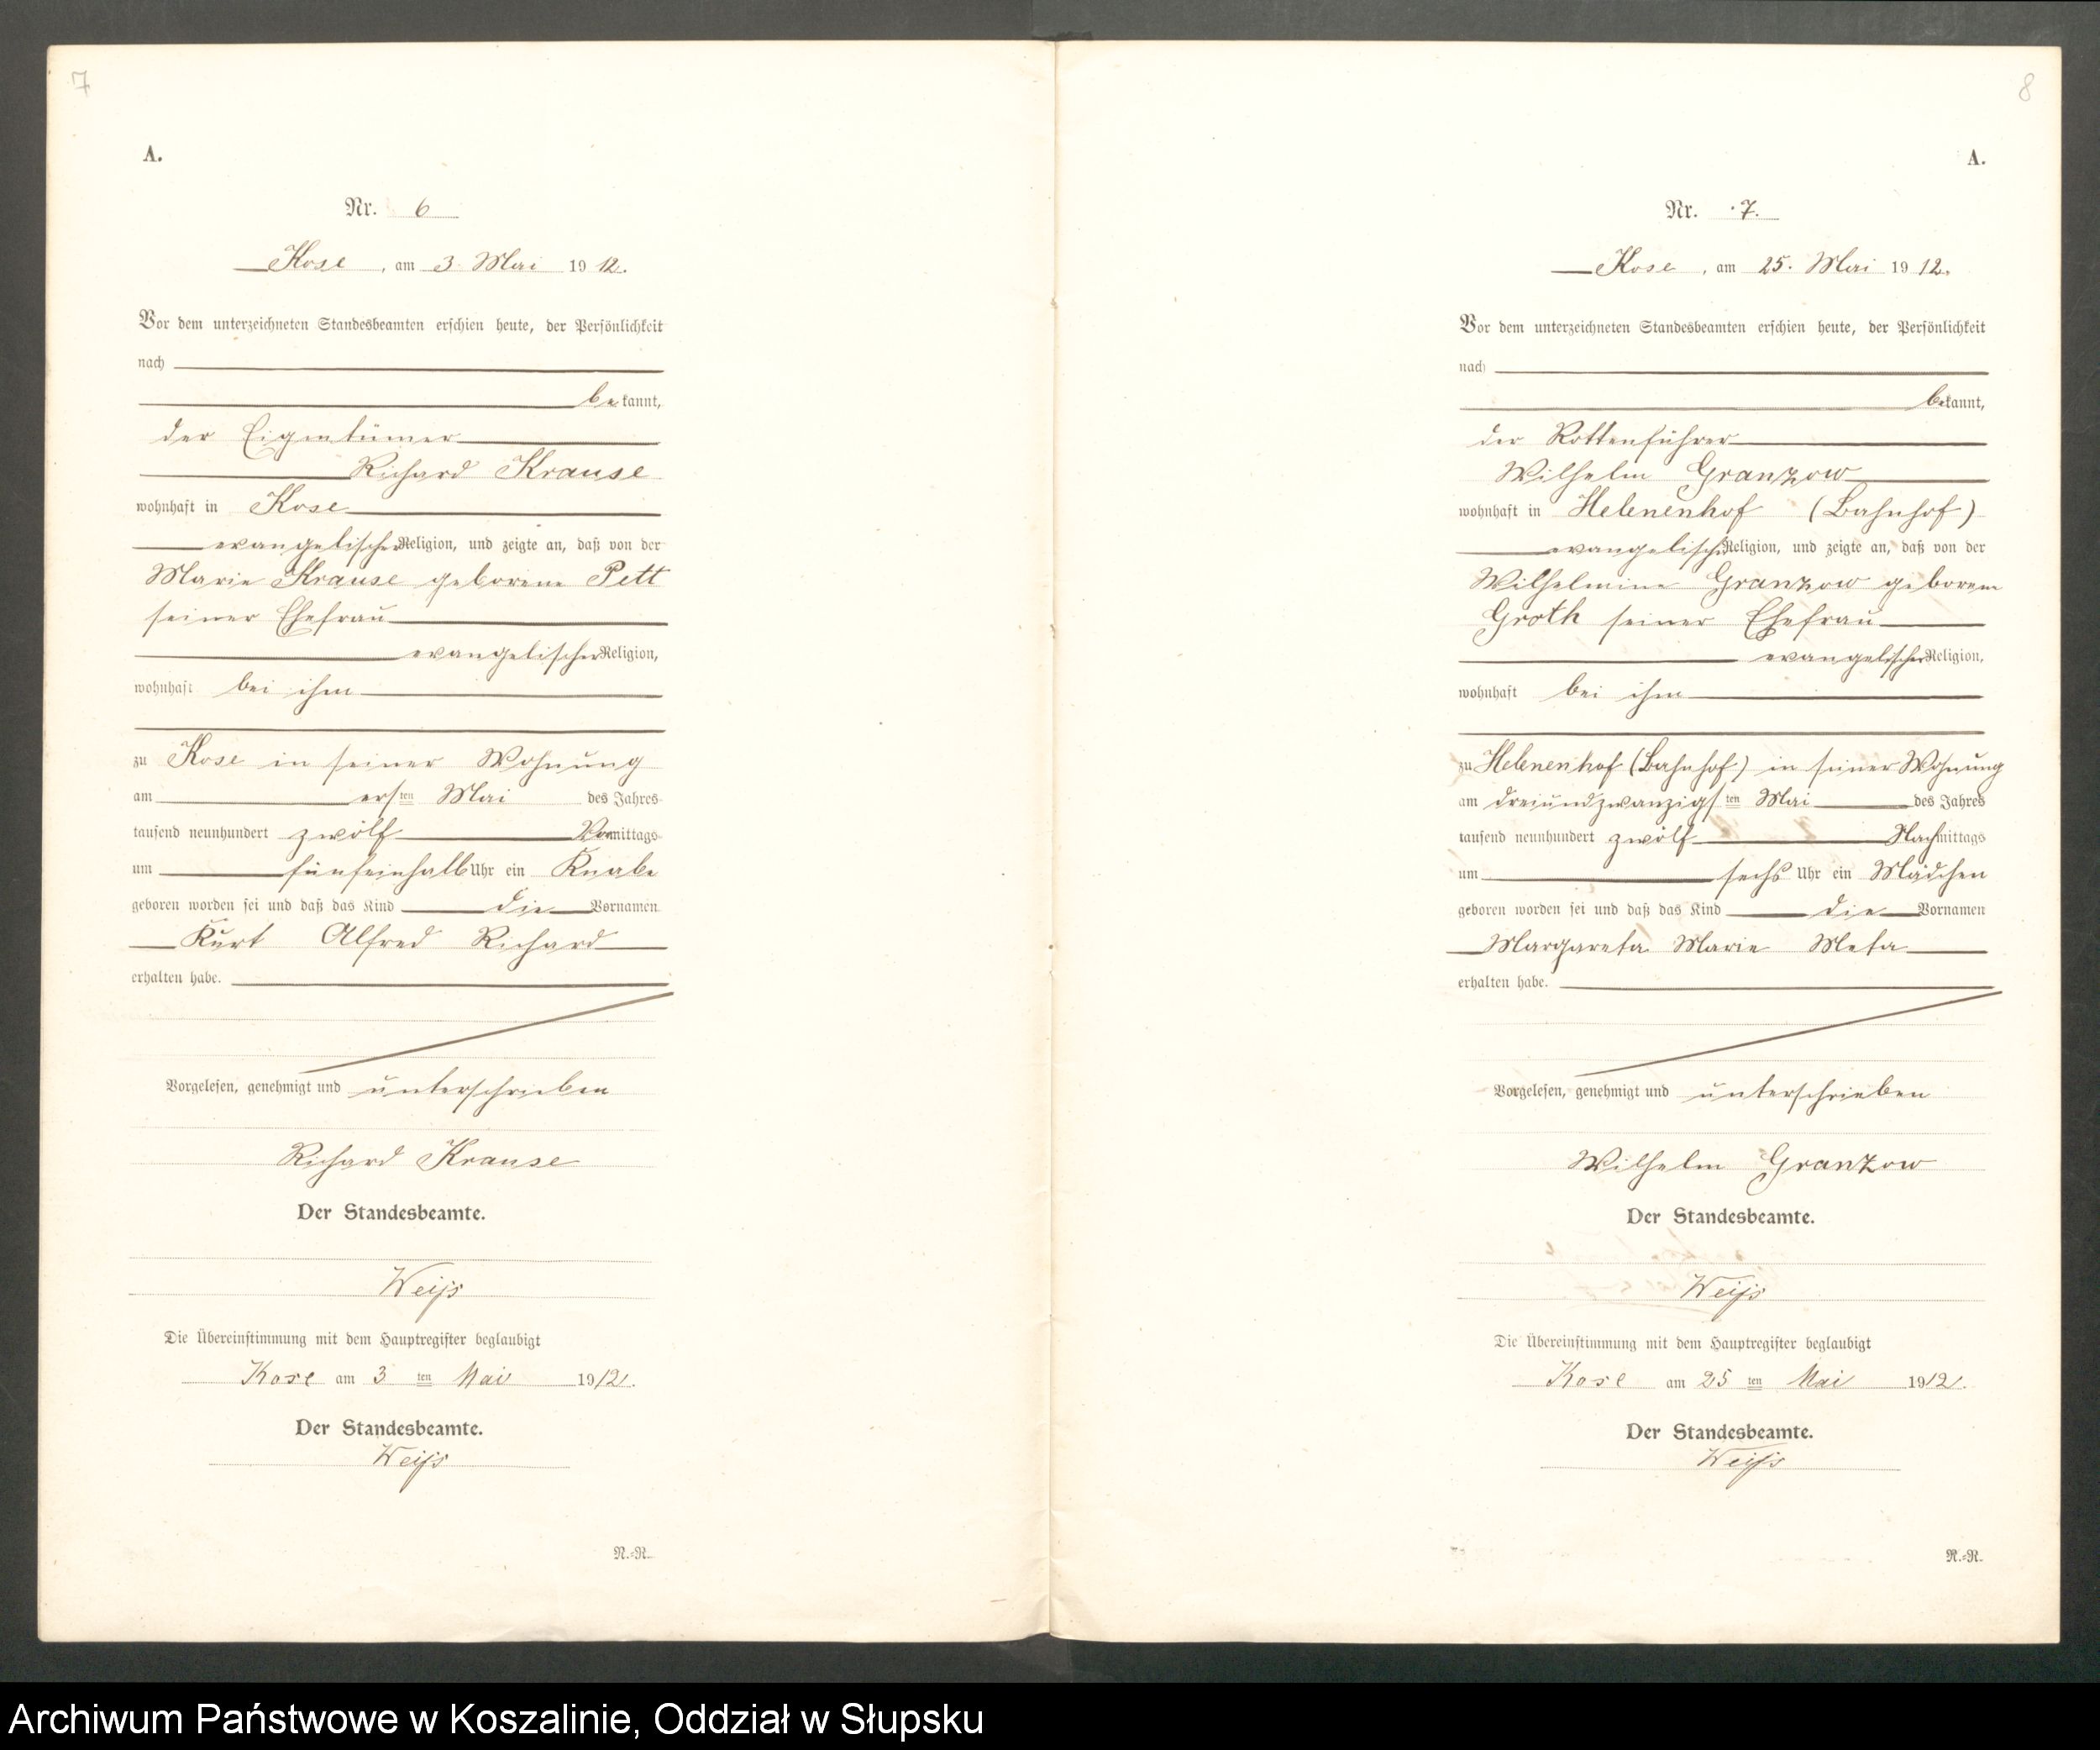 7
A.
Nr. 6
Kose, am 3. Mai 1912.
Vor dem unterzeichneten Standesbeamten erschien heute, der Persönlichkeit
nach
bekannt,
der Eigentümer
Richard Krause
wohnhaft in Kose
evangelischer Religion, und zeigte an, daß von der
Marie Krause geborene Pett
seiner Ehefrau
evangelischer Religion,
wohnhaft bei ihm
zu Kose in seiner Wohnung
am ersten Mai des Jahres
tausend neunhundert zwölf Vormittags
um fünfeinhalb Uhr ein Knabe
geboren worden sei und daß das Kind die Vornamen
Kurt Alfred Richard
erhalten habe.
Vorgelesen, genehmigt und unterschrieben
Richard Krause
Der Standesbeamte.
Weiß
Die Übereinstimmung mit dem Hauptregister beglaubigt
Kose am 3 ten Mai 1912.
Der Standesbeamte.
Weiß
N.=R.
8
A.
Nr. 7.
Kose, am 25. Mai 1912.
Vor dem unterzeichneten Standesbeamten erschien heute, der Persönlichkeit
nach
bekannt,
der Rottenführer
Wilhelm Granzow
wohnhaft in Helenenhof (Bahnhof)
evangelischer Religion, und zeigte an, daß von der
Wilhelmine Granzow geborene
Groth seiner Ehefrau
evangelischer Religion,
wohnhaft bei ihm
zu Helenenhof (Bahnhof) in seiner Wohnung
am dreiundzwanzigsten Mai des Jahres
tausend neunhundert zwölf Nachmittags
um sechs Uhr ein Mädchen
geboren worden sei und daß das Kind die Vornamen
Margareta Marie Meta
erhalten habe.
Vorgelesen, genehmigt und unterschrieben
Wilhelm Granzow
Der Standesbeamte.
Weiß
Die Übereinstimmung mit dem Hauptregister beglaubigt
Kose am 25 ten Mai 1912.
Der Standesbeamte.
Weiß
N.=R.
Archiwum Państwowe w Koszalinie, Oddział w Słupsku